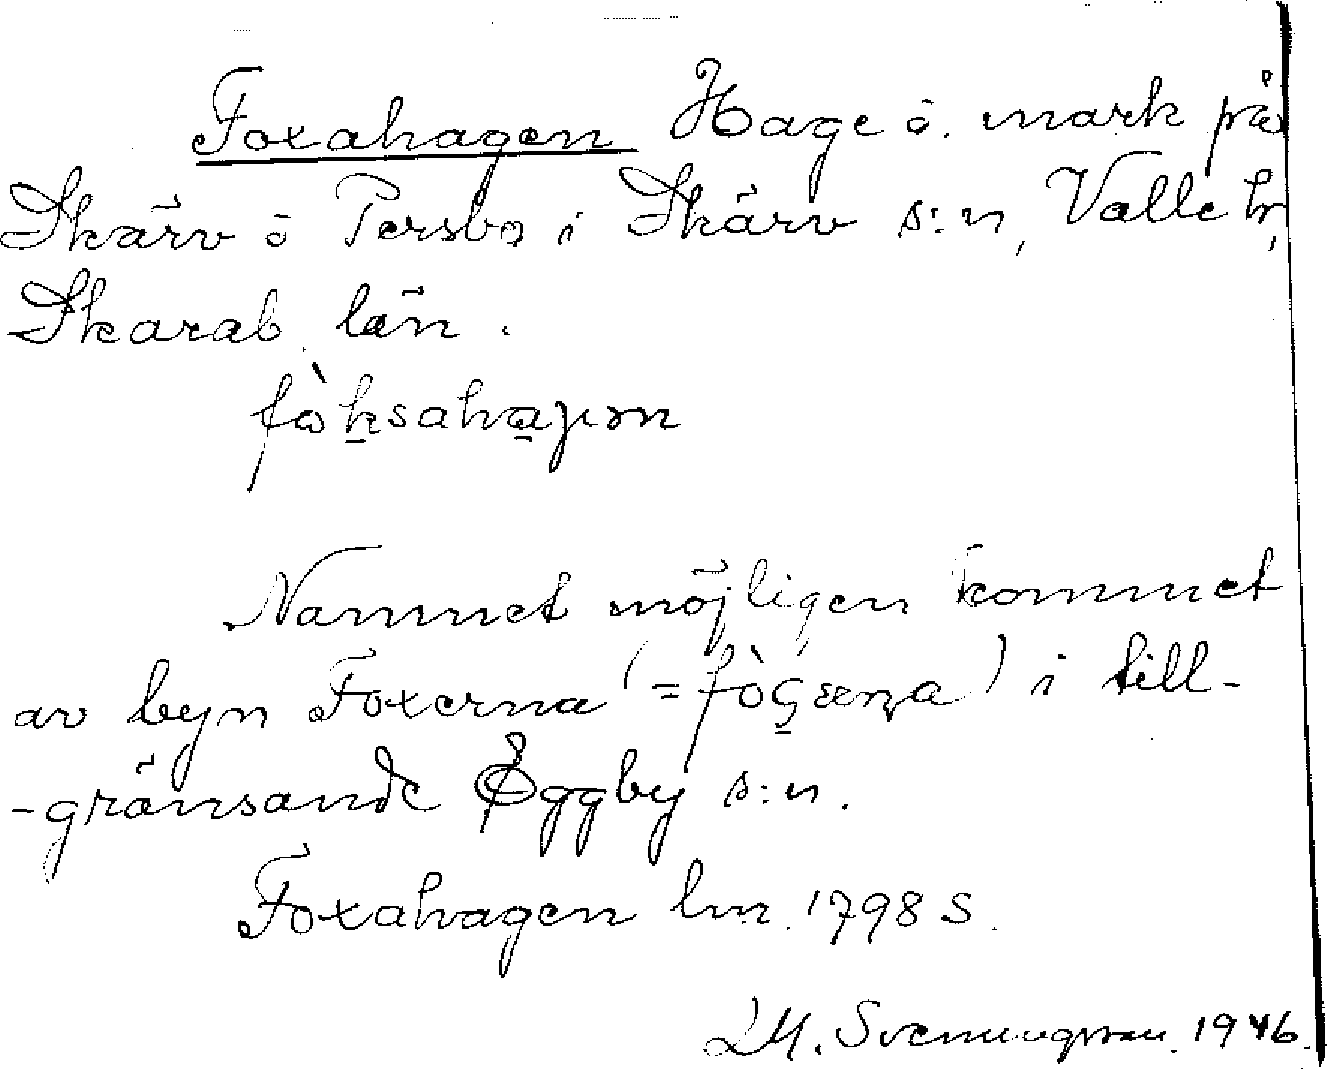 Foxahagen Hage ö. mark på
Skärv ö Persbo i Skärv s:n, Valle hr,
Skarab. län.
fòksahaγən
Namnet möjligen kommet
av byn Foxerna (= fòçæɳa) i till-
-gränsande Eggby s:n.
Foxahagen lm. 1798 S.
Svenungsson. 1946.